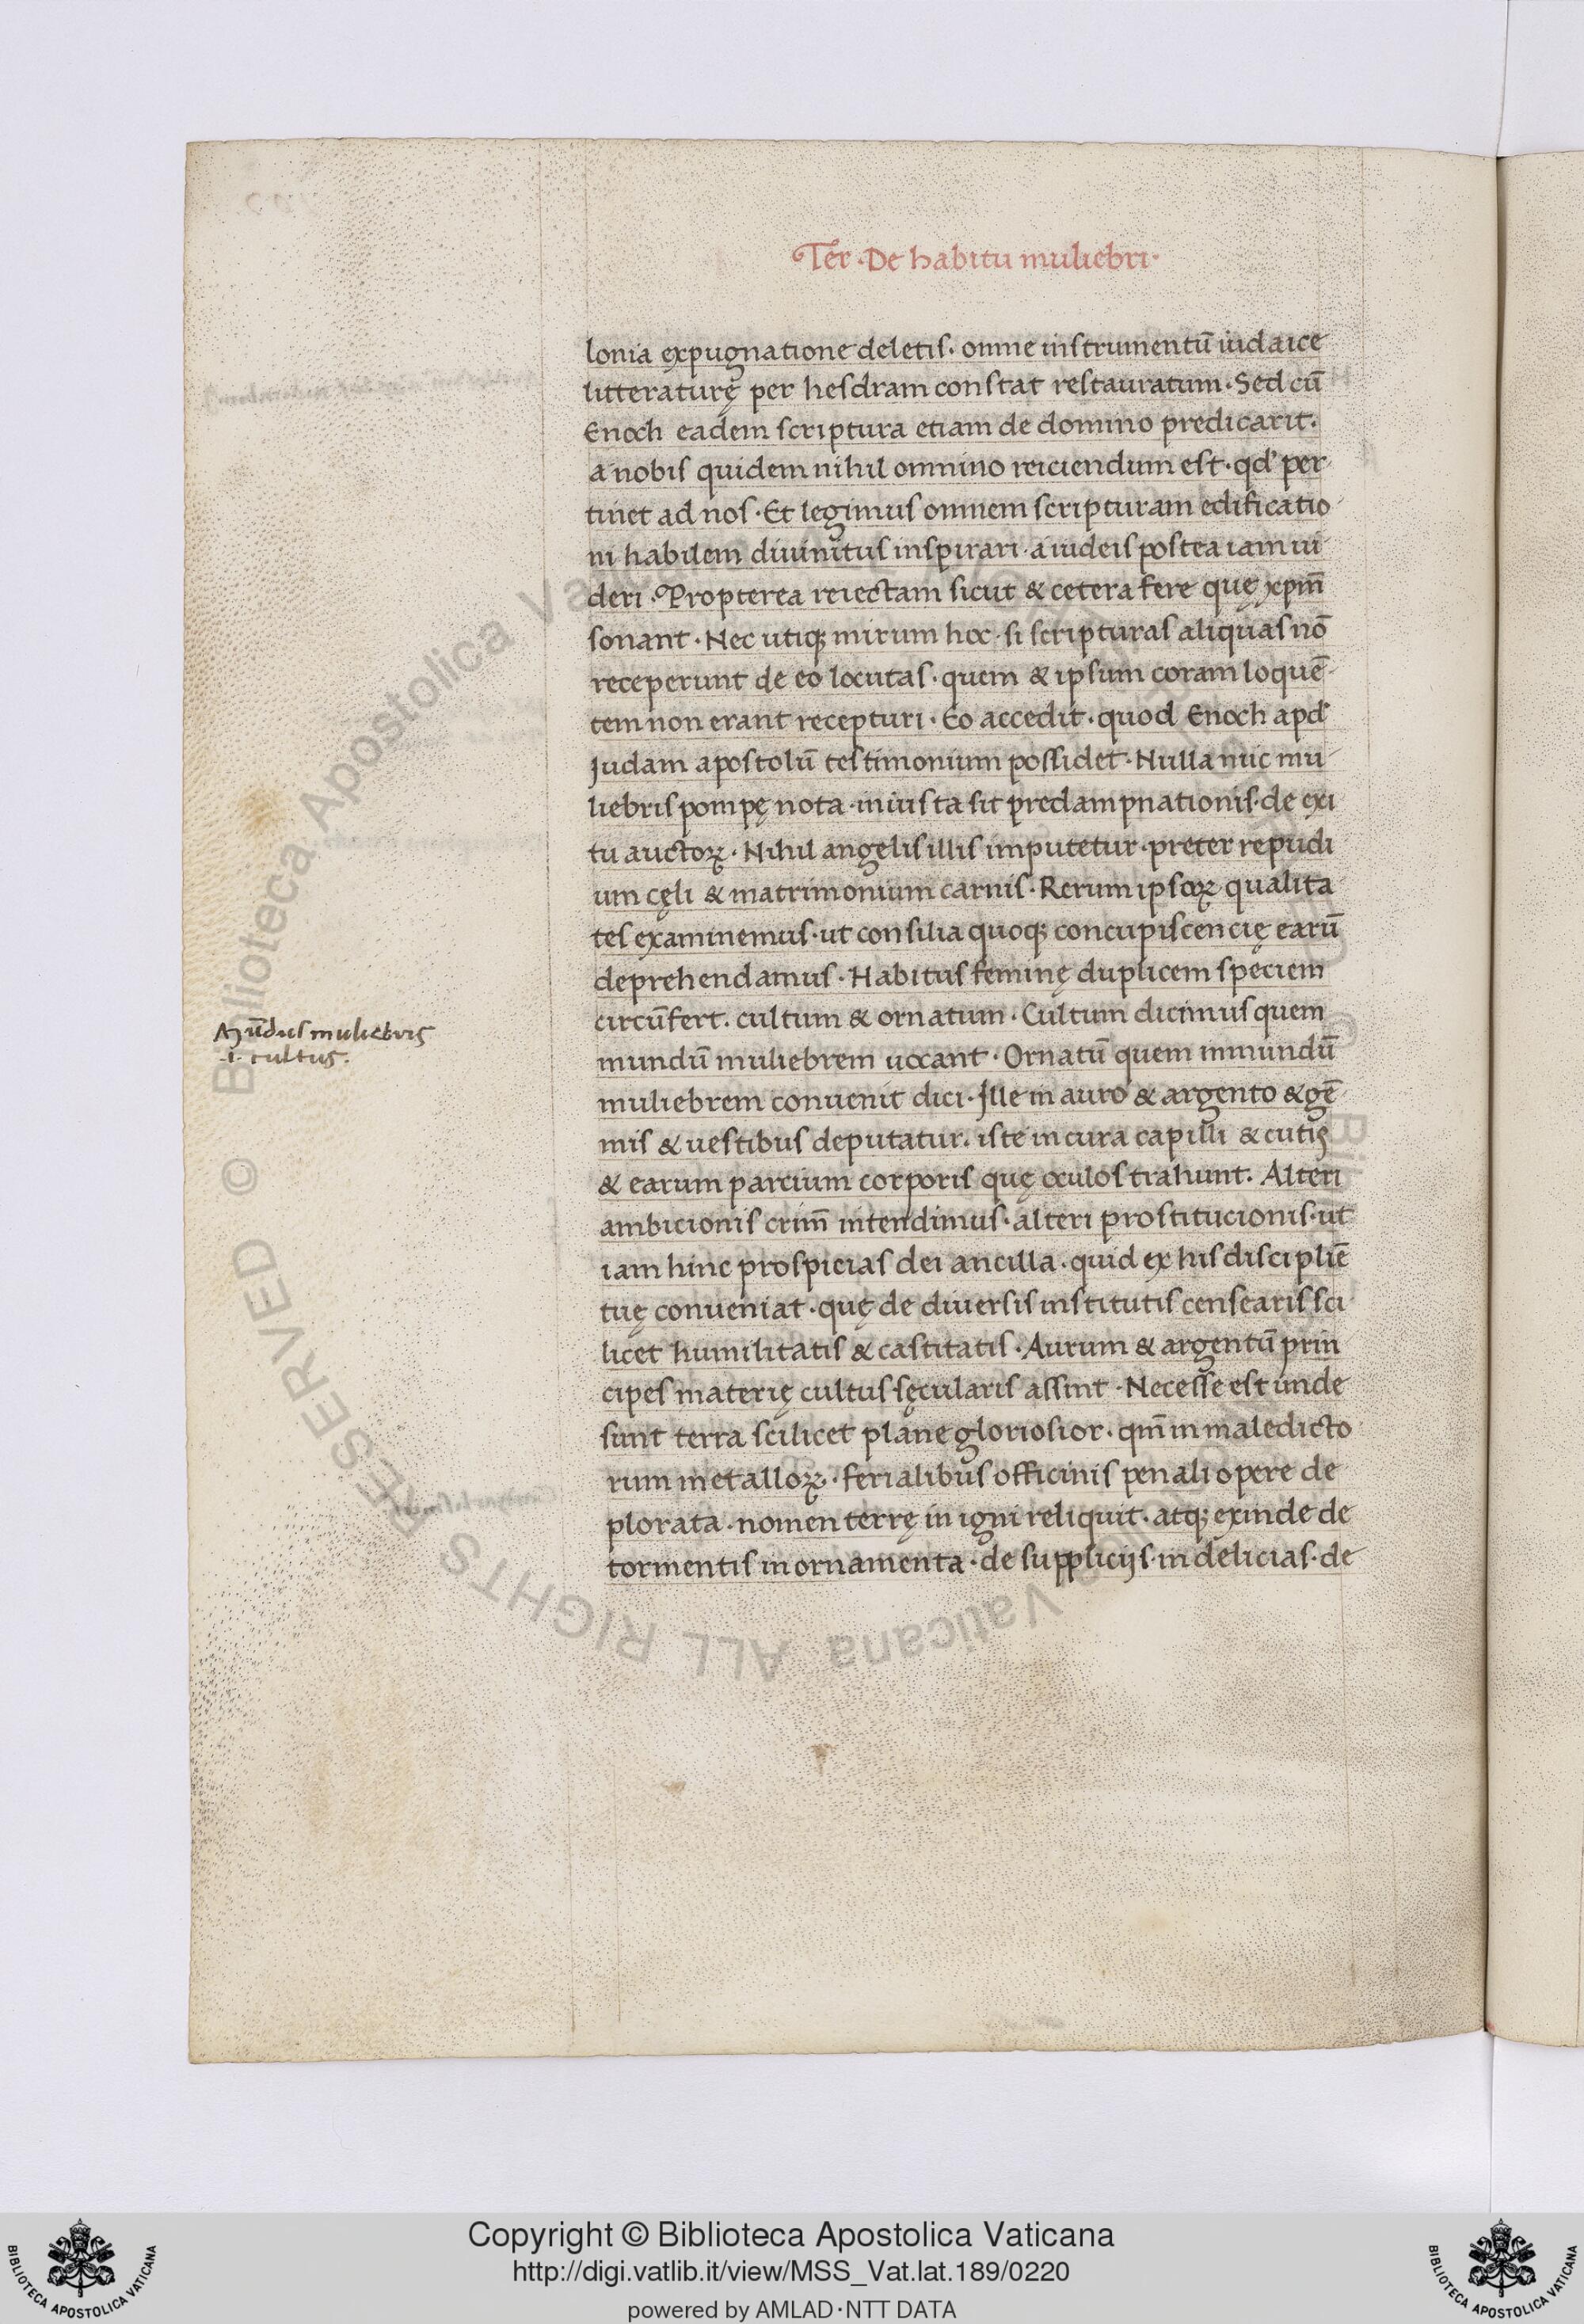 Ter · De habitu muliebri ·
lonia expugnatione deletis. omne instrumentū iudaice
litteraturę per hesdram constat restauratum · Sed cū
Enoch eadem scriptura etiam de domino predicarit.
a nobis quidem nihil omnino reiciendum est · qđ per
tinet ad nos · Et legimus omnem scripturam edificatio
ni habilem diuinitus inspirari · a iudeis postea iam ui
deri · Propterea reiectam sicut & cetera fere quę xpm̄
sonant · Nec utiqꝫ mirum hoc · si scripturas aliquas nō
receperunt de eo locutas · quem & ipsum coram loquē
tem non erant recepturi · Eo accedit · quod Enoch apđ
Judam apostolū testimonium possidet · Nulla nūc mu
liebris pompę nota · iniusta sit predampnationis · de exi
tu auctoꝝ · Nihil angelis illis imputetur · preter repudi
um cęli & matrimonium carnis · Rerum ipsoꝝ qualita
tes examinemus · ut consilia quoqꝫ concupiscencię earū
deprehendamus · Habitus feminę duplicem speciem
circūfert. cultum & ornatum · Cultum dicimus quem
Mūdus muliebris
.i. cultus.
mundū muliebrem uocant · Ornatū quem inmundū
muliebrem conuenit dici · Ille in auro & argento & gē
mis & uestibus deputatur. iste in cura capilli & cutis
& earum parcium corporis quę oculos trahunt. Alteri
ambicionis crim̄ intendimus · alteri prostitucionis · ut
iam hinc prospicias dei ancilla · quid ex his disciplīe
tuę conueniat · quę de diuersis institutis censearis sci
licet humilitatis & castitatis · Aurum & argentū prin
cipes materię cultus sęcularis assint · Necesse est unde
sunt terra scilicet plane gloriosior · qm̄ in maledicto
rum metalloꝝ · ferialibus officinis penali opere de
plorata · nomen terrę in igni reliquit · atqꝫ exinde de
tormentis in ornamenta · de suppliciis · in delicias · de
Copyright © Biblioteca Apostolica Vaticana
http://digi.vatlib.it/view/MSS_Vat.lat.189/0220
powered by AMLAD·NTT DATA
BIBLIOTECA APOSTOLICA VATICANA
BIBLIOTECA APOSTOLICA VATICANA